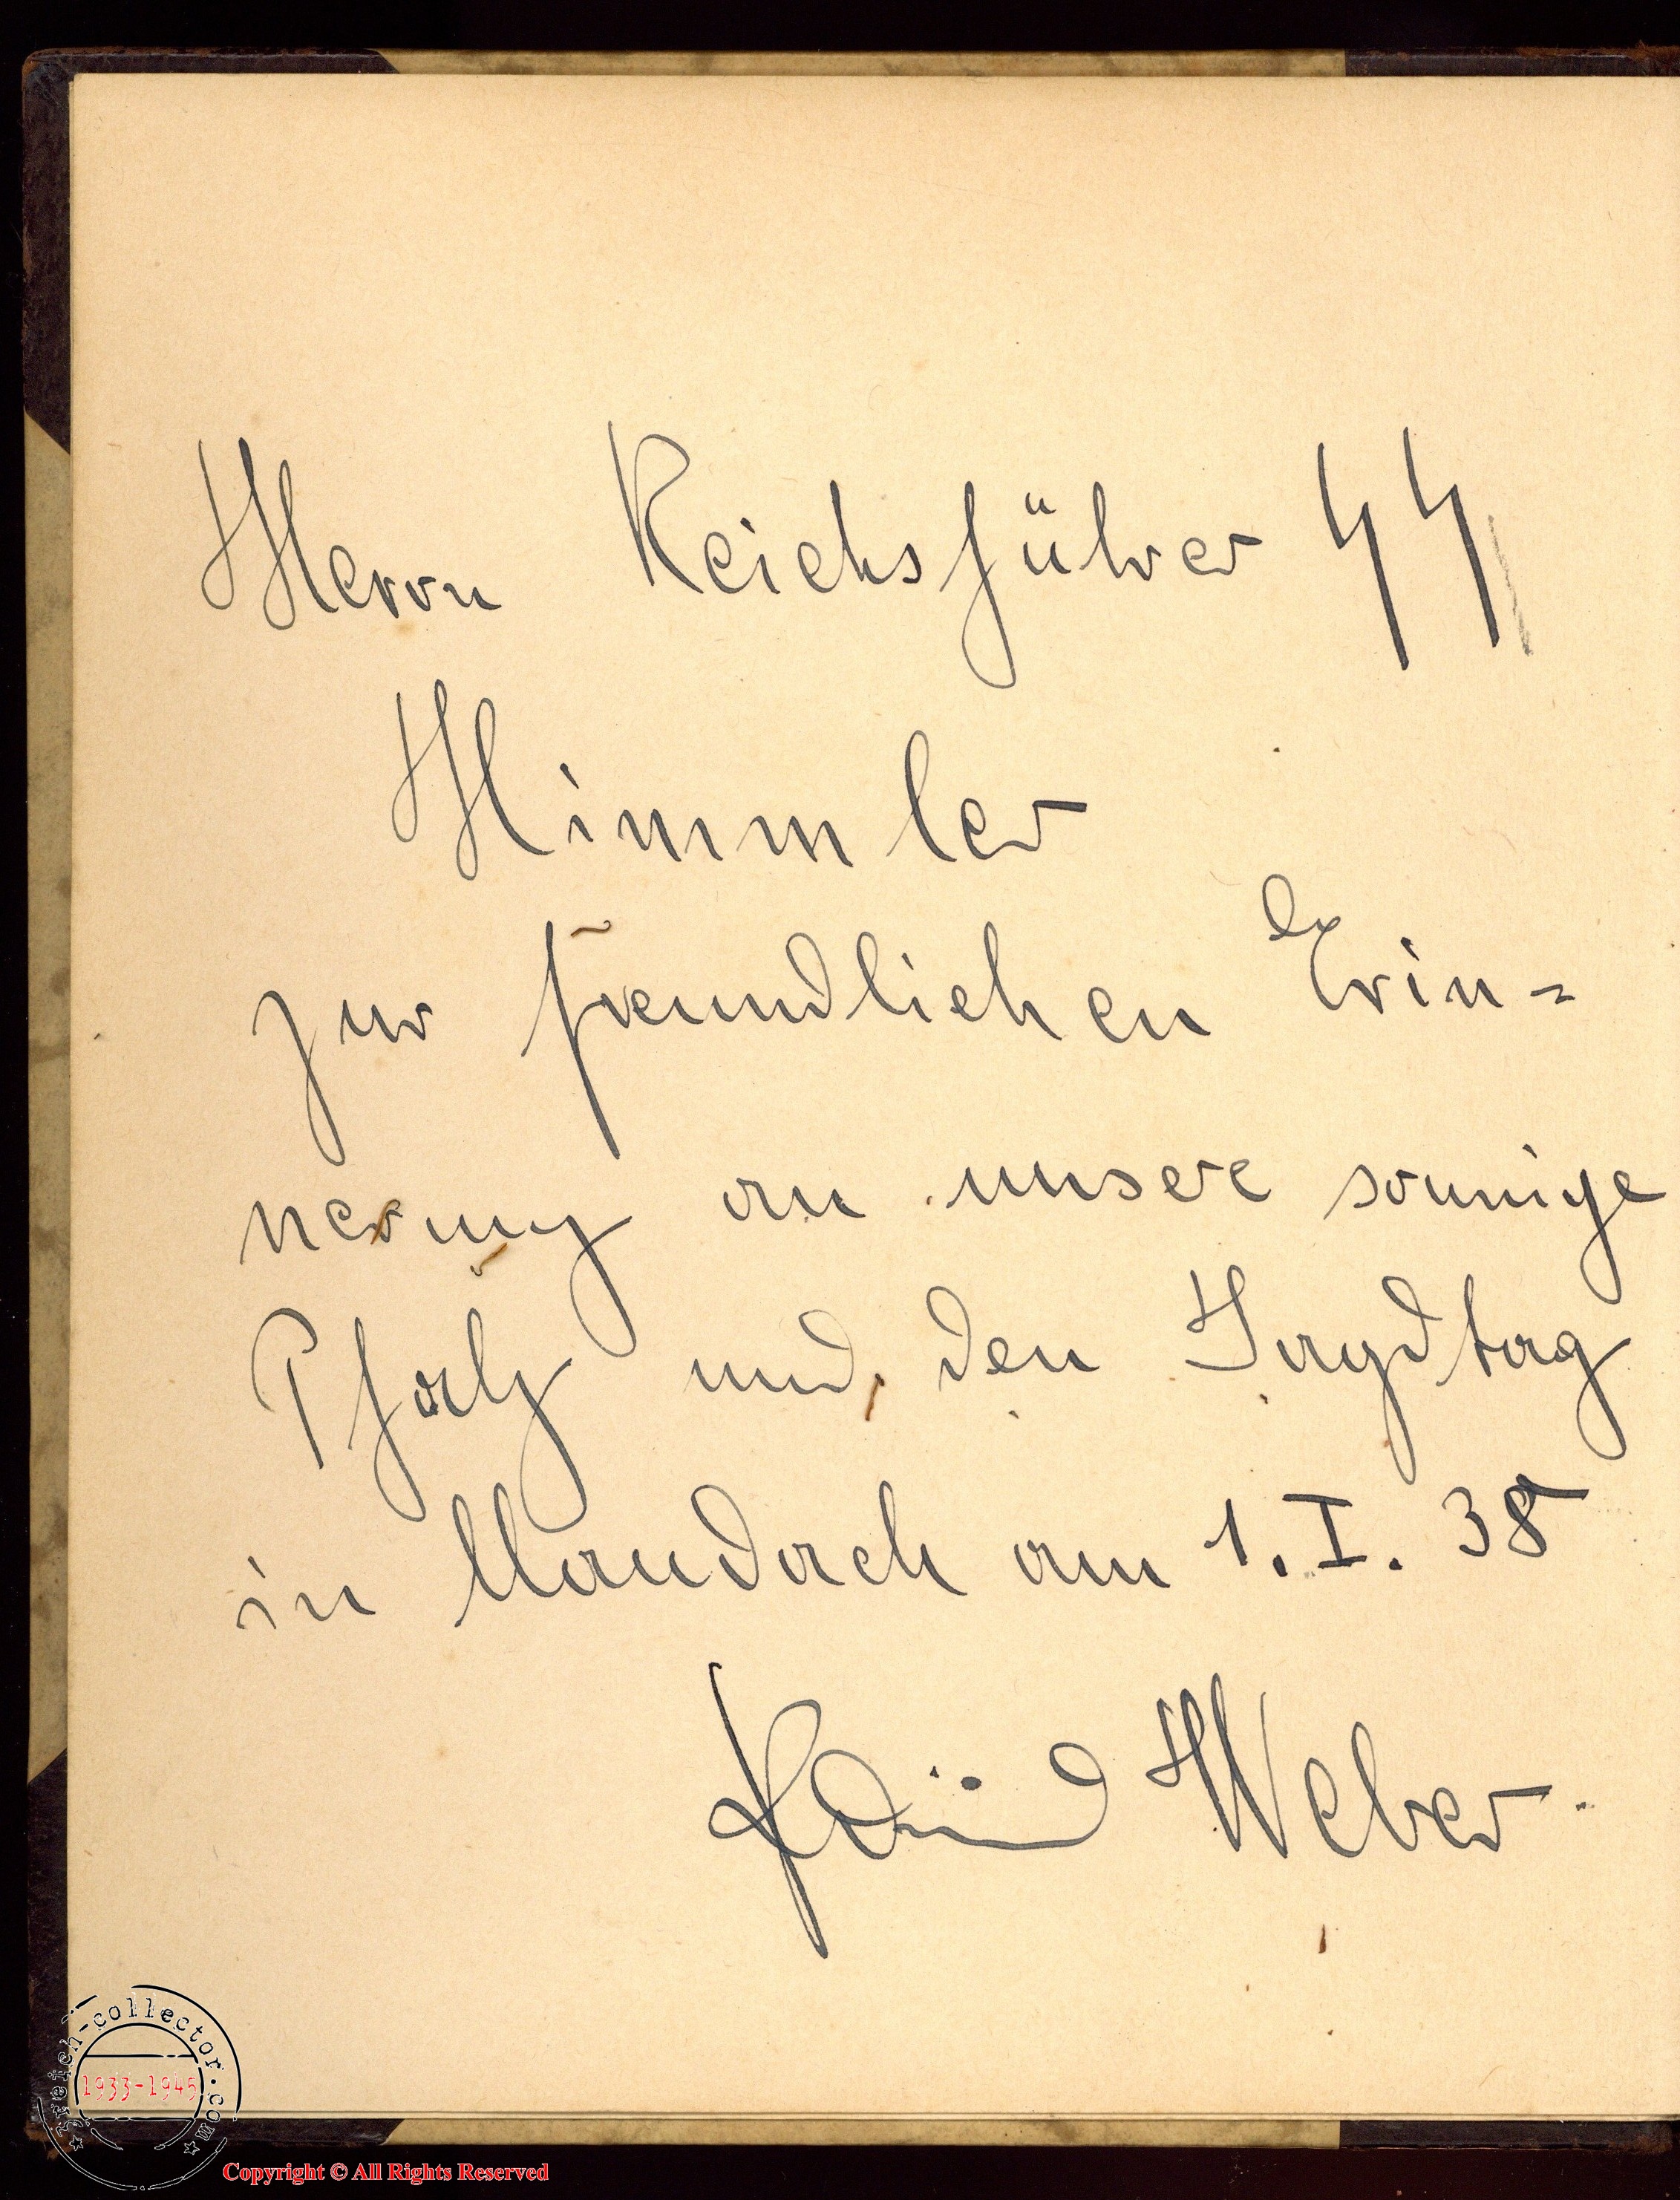 Herrn Reichsführer SS
Himmler
zur freundlichen Erin=
nerung an unsere sonnige
Pfalz und den Jagdtag
in Maudach am 1. I. 38
Weber.
3reich-collector.com
1933-1945
Copyright © All Rights Reserved